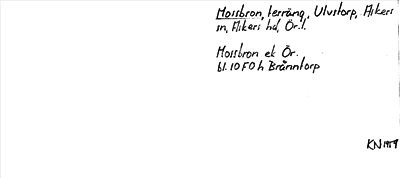 Mossbron, terräng, Ulvstorp, Askers
sn, Askers hd, Ör.l.
Mossbron ek Ör.
bl. 10 F 0 h Bränntorp
KN 1959